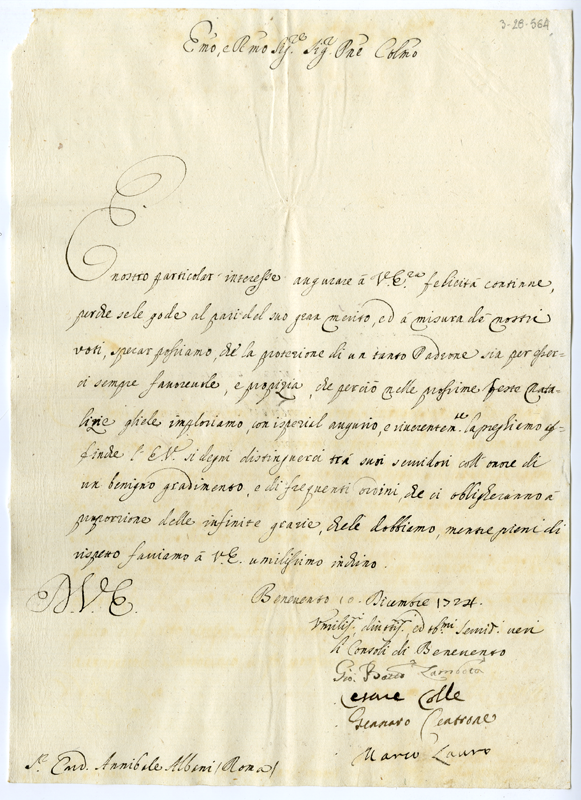 3-28-564
Emo, e Rmo Sig.re Sig.r Pne Colmo
È nostro particolar interesse augurare à V.E.za felicità continue,
perche se le gode al pari del suo gran merito, ed à misura de nostri
voti, sperar possiamo, che la protezione di un tanto Padrone sia per esser-
ci sempre favorevole, e propizia, che perciò nelle prossime feste Nata-
lizie gliele imploriamo, con ispezial augurio, e riverentem.te la preghiamo af-
finche l'E.V. si degni distinguerci trà suoi servidori coll'onore di
un benigno gradimento, e di frequenti ordini, che ci obligheranno à
proporzione delle infinite grazie, che le dobbiamo, mentre pieni di
rispetto facciamo à V.E. umilissimo inchino.
D.V.E.
Benevento 10 Dicembre 1724.
Umiliss.i, divotiss.i, ed obl.mi servit.i veri
li Consoli di Benevento
Gio. Batt.a
Cesare Colle
Gennaro
Marco Lauro
Sr. Card. Annibale Albani (Roma)